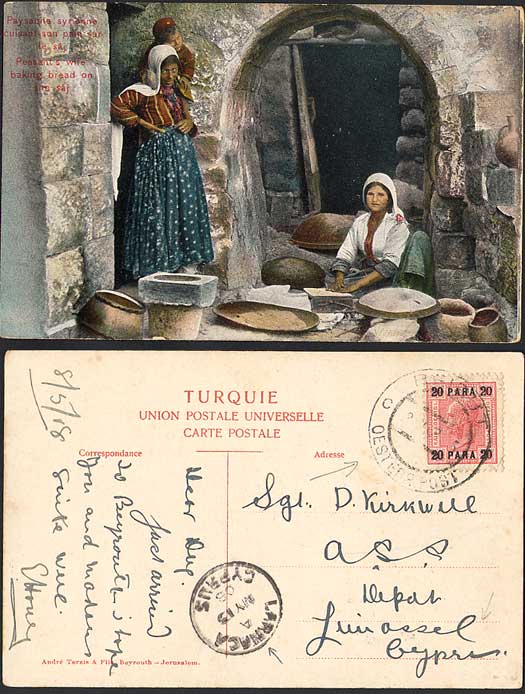 Paysanne syrienne
cuisant son pain sur
le sâj
Peasant's wife
baking bread on
the sâj
TURQUIE
UNION POSTALE UNIVERSELLE
CARTE POSTALE
Correspondance
Adresse
8/5/08
Just arrived
to Beyrouth i hope
you and madam
quite well
20 PARA 20
20 PARA 20
LARNACA
CYPRUS
A
08
Sgt. D. Kirkwell
A.S.S
Depot
Limassol
Cyprus
André Terzis & Fils, Beyrouth – Jerusalem.